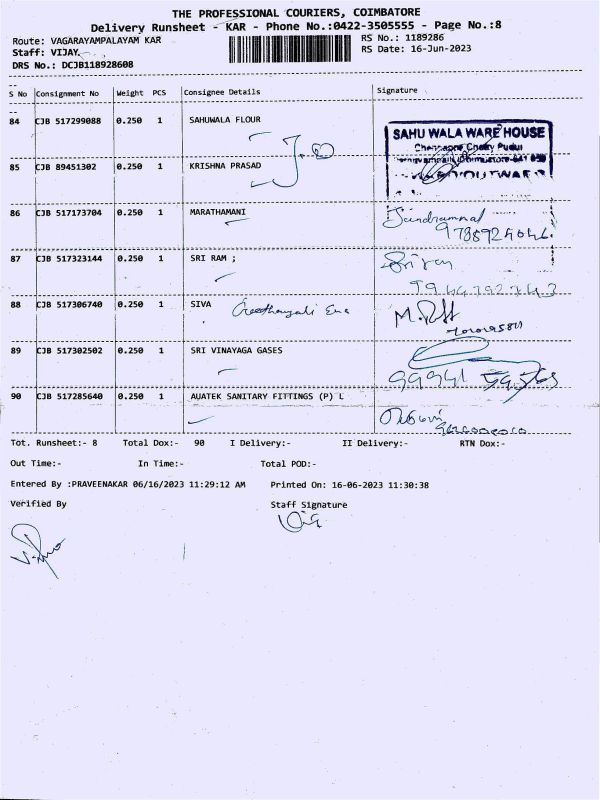 THE PROFESSIONAL COURIERS, COIMBATORE
Delivery Runsheet - KAR - Phone No.:0422-3505555 - Page No.:8
Route: VAGARAYAMPALAYAM KAR
RS No.: 1189286
Staff: VIJAY
RS Date: 16-Jun-2023
DRS No.: DCJB118928608
S No Consignment No Weight PCS Consignee Details Signature
84 CJB 517299088 0.250 1 SAHUWALA FLOUR
SAHU WALA WARE HOUSE
85 CJB 89451302 0.250 1 KRISHNA PRASAD
86 CJB 517173704 0.250 1 MARATHAMANI
87 CJB 517323144 0.250 1 SRI RAM ;
88 CJB 517306740 0.250 1 SIVA
89 CJB 517302502 0.250 1 SRI VINAYAGA GASES
90 CJB 517285640 0.250 1 AUATEK SANITARY FITTINGS (P) L
Tot. Runsheet:- 8 Total Dox:- 90 I Delivery:- II Delivery:- RTN Dox:-
Out Time:- In Time:- Total POD:-
Entered By :PRAVEENAKAR 06/16/2023 11:29:12 AM Printed On: 16-06-2023 11:30:38
Verified By Staff Signature